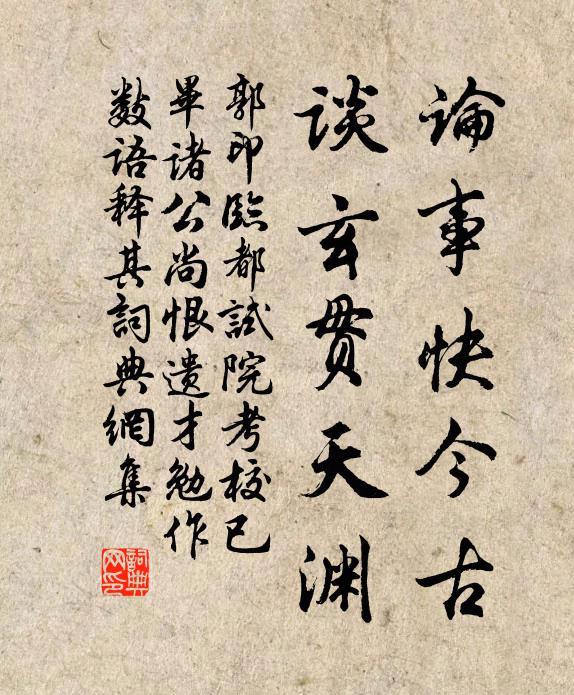 論事快今古
谈玄贯天渊
郭印臨都試院考校已
畢诸公尚恨遗才勉作
数语释其詞典網集
詞典网印